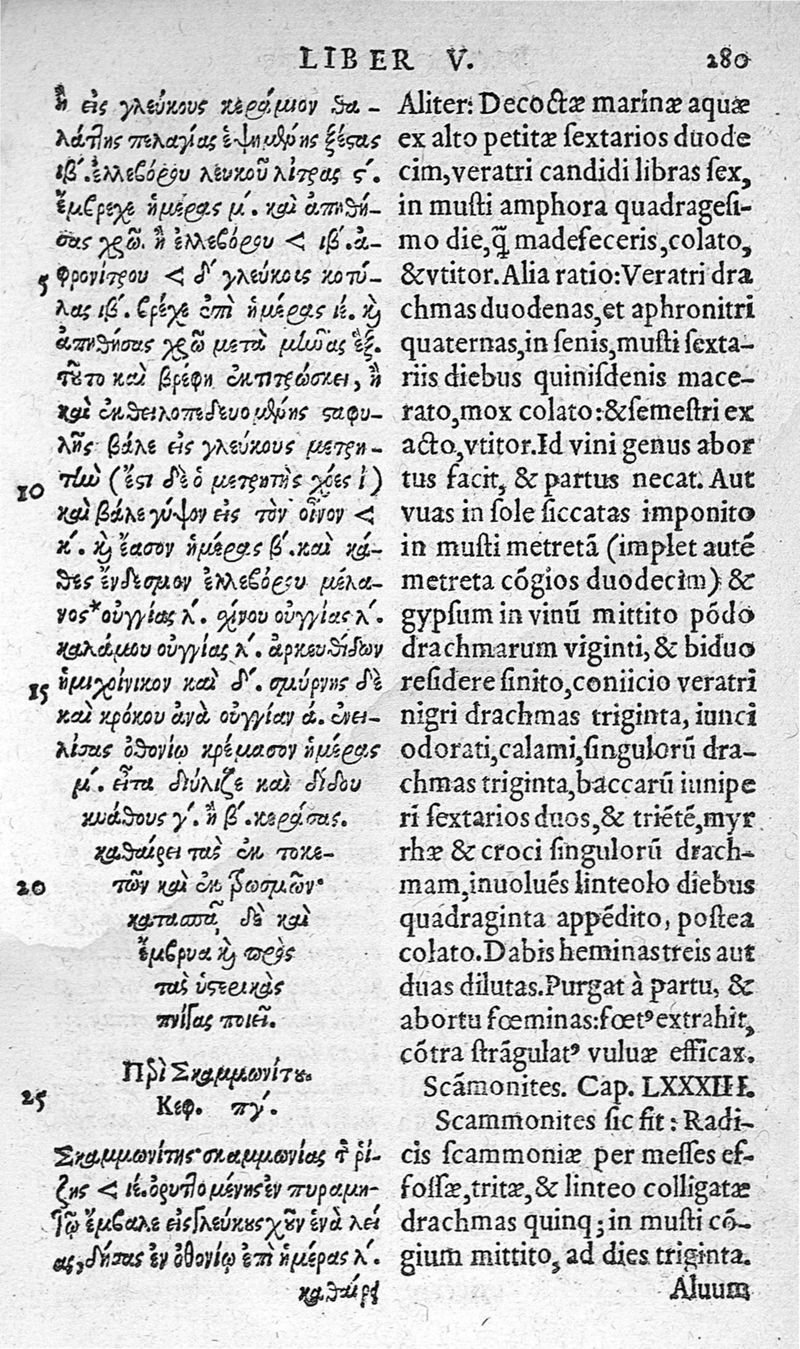 LIBER V. 280
ἢ εἰς γλεύκους κεράμιον θα-
λάττης πελαγίας ἑψημένης ξέστας
ιβ΄. ἐλλεβόρου λευκοῦ λίτρας ϛ΄.
ἔμβρεχε ἡμέρας μ΄. καὶ ἀπηθή-
σας χρῶ. ἢ ἐλλεβόρου < ιβ΄. ἀ-
5 φρονίτρου < δ΄ γλεύκοις κοτύ-
λας ιβ΄. βρέχε ἐπὶ ἡμέρας ιε΄. καὶ
ἀπηθήσας χρῶ μετὰ μῆνας ἕξ.
τοῦτο καὶ βρέφη ἐκτιτρώσκει, ἢ
καὶ ἐκθειλοπεδευομένης σταφυ-
λῆς βάλε εἰς γλεύκους μετρη-
10 τὴν (ἔστι δὲ ὁ μετρητὴς χόες ἰ)
καὶ βάλε γύψον εἰς τὸν οἶνον <
κ΄. καὶ ἔασον ἡμέρας β΄. καὶ κά-
θες ἔνδεσμον ἐλλεβόρου μέλα-
νος* οὐγγίας λ΄. σχίνου οὐγγίας λ΄.
καλάμου οὐγγίας λ΄. ἀρκευθίδων
15 ἡμιχοίνικον καὶ δ΄. σμύρνης δὲ
καὶ κρόκου ἀνὰ οὐγγίαν ά. ἐνει-
λίσας ὀθονίῳ κρέμασον ἡμέρας
μ΄. εἶτα διύλιζε καὶ δίδου
κυάθους γ΄. ἢ β΄. κεράσας.
καθαίρει τὰς ἐκ τοκε-
20 τῶν καὶ ἐκτρωσμῶν·
κατασπᾷ δὲ καὶ
ἔμβρυα καὶ πρὸς
τὰς ὑστερικὰς
πνίξας ποιεῖ.
Περὶ Σκαμμωνίτου.
25 Κεφ. πγ΄.
Σκαμμωνίτης· σκαμμωνίας τῆς ῥί-
ζης < ιε. ὀρυττομένης ἐν πυραμη-
τῷ ἔμβαλε εἰς γλεύκους χοῦν ἕνα λει
ας, δήσας ἐν ὀθονίῳ ἐπὶ ἡμέρας λ΄.
καθαίρει
Aliter: Decoctæ marinæ aquæ
ex alto petitæ sextarios duode
cim, veratri candidi libras sex,
in musti amphora quadragesi-
mo die, q̃ madefeceris, colato,
& vtitor. Alia ratio: Veratri dra
chmas duodenas, et aphronitri
quaternas, in senis, musti sexta-
riis diebus quinisdenis mace-
rato, mox colato: & semestri ex
acto, vtitor. Id vini genus abor
tus facit, & partus necat. Aut
vuas in sole siccatas imponito
in musti metretã (implet autẽ
metreta cõgios duodecim) &
gypsum in vinũ mittito põdo
drachmarum viginti, & biduo
residere sinito, coniicio veratri
nigri drachmas triginta, iunci
odorati, calami, singulorũ dra-
chmas triginta, baccarũ iunipe
ri sextarios duos, & triẽtẽ, myr
rhæ & croci singulorũ drach-
mam, inuoluẽs linteolo diebus
quadraginta appẽdito, postea
colato. Dabis heminas treis aut
duas dilutas. Purgat à partu, &
abortu fœminas: fœtꝰ extrahit,
cõtra strãgulatꝰ vuluæ efficax.
Scãmonites. Cap. LXXXIII.
Scammonites sic fit: Radi-
cis scammoniæ per messes ef-
fossæ, tritæ, & linteo colligatæ
drachmas quinq; in musti cõ-
gium mittito, ad dies triginta.
Aluum